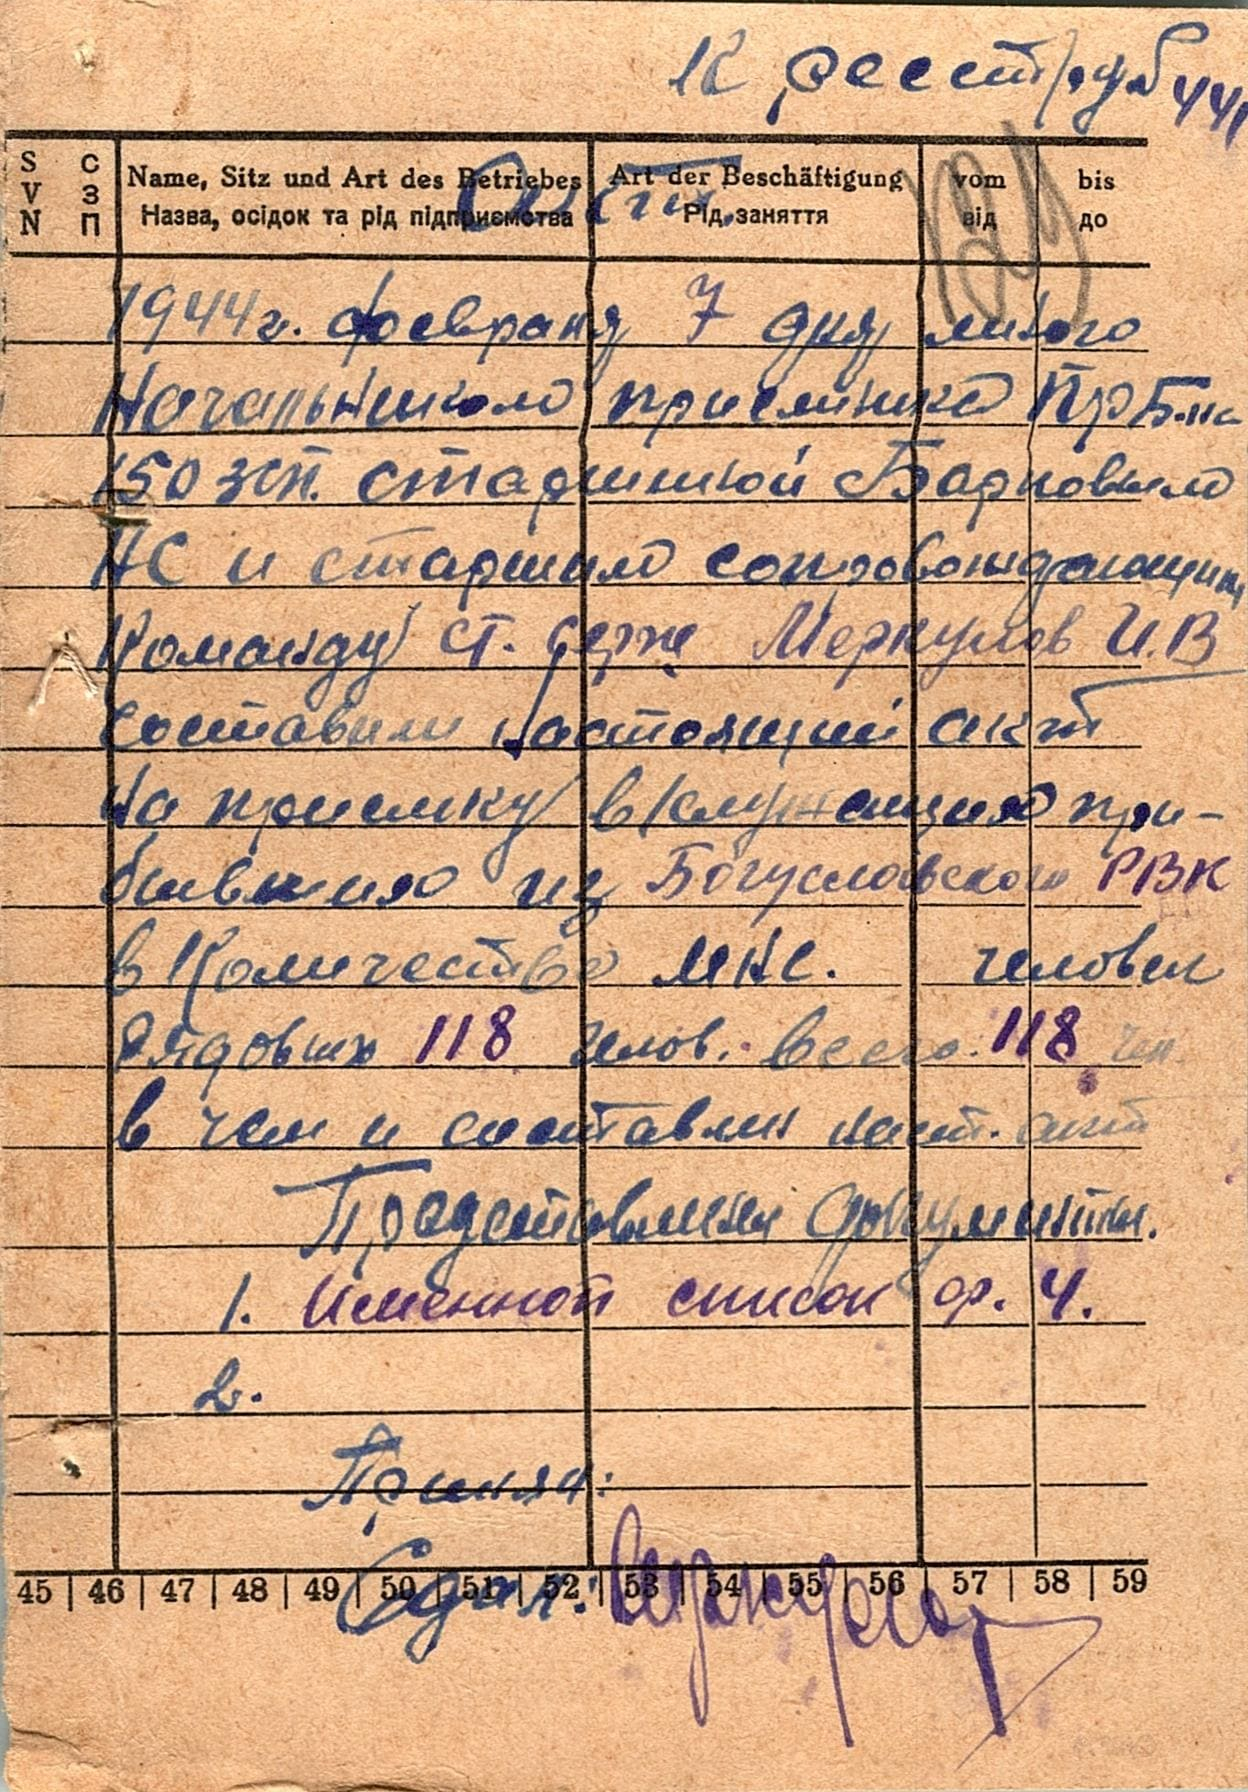 К реестру
S С Name, Sitz und Art des Betriebes Art der Beschäftigung vom bis
V З Назва, осідок та рід підприємства Рід заняття від до
N П
Акт.
1944 г. февраля 7 дня мною
Начальником приемника
150 зсп. старшиной
АС и старшим сопровождающим
Команду ст. серж Меркулов И.В
составили настоящий акт
на приемку в/служащих при-
бывших из Богуславского РВК
в Количестве МНС. человек
Рядовых 118 челов. всего. 118 чел.
в чем и составлен наст. акт
Представлены документы.
1. Именной список ф. 4.
2.
Принял:
45 | 46 | 47 | 48 | 49 | 50 | 51 | 52 | 53 | 54 | 55 | 56 | 57 | 58 | 59
Сдал: